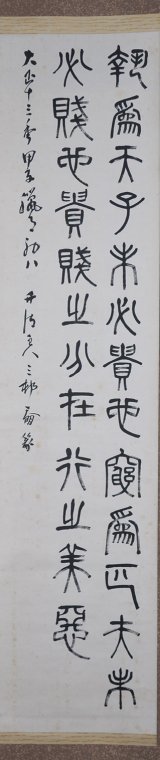 埶爲天子未必貴也窮爲匹夫未
必賤也貴賤之分在行之美惡
大正十三年甲子臘月初八